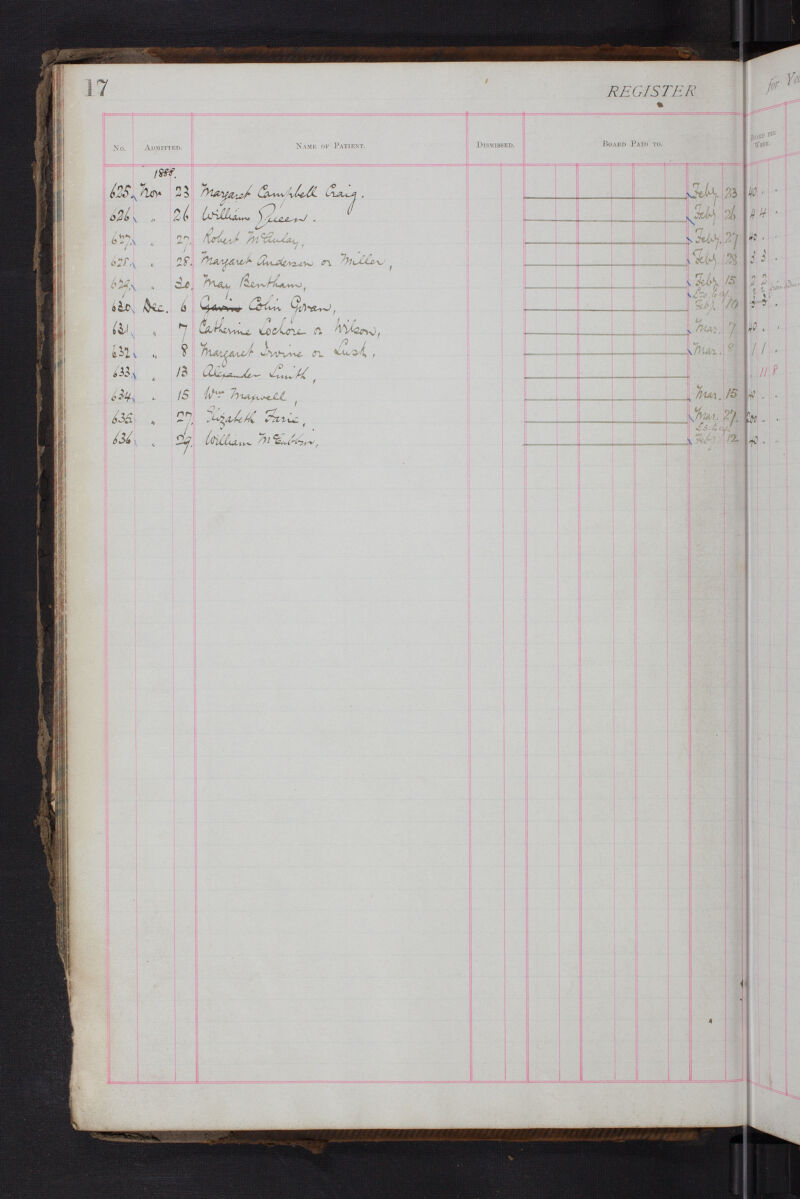 17
REGISTER
for
No. Admitted. Name of Patient. Dismissed. Board Paid to. Board per Week.
1888.
625 Nov 23 Margaret Campbell Craig. Feby 23 40 . .
626 „ 26 William Queen. Feby 26 4 4 .
627 „ 27 Robert McAulay, Feby 27 40 . .
628 „ 28. Margaret Anderson or Miller, Feby 28 3 3 .
629 „ 30 May Bentham, Feby 15 2 2
630 Dec. 6 Gavin Colin Govan, Feby 10 3 3 .
631 „ 7 Catherine Lochore or Wilson, Mar. 7 40 . .
632 „ 8 Margaret Irvine or Lush, Mar. 8 1 1 .
633 „ 13 Alexander Smith, . 11 8
634 „ 15 Wm Maxwell, Mar. 15 40 . .
635 „ 27. Elizabeth Farie, Mar. 27. 200 . .
636 „ 29. William McCubbin, Feby 12 40 . .